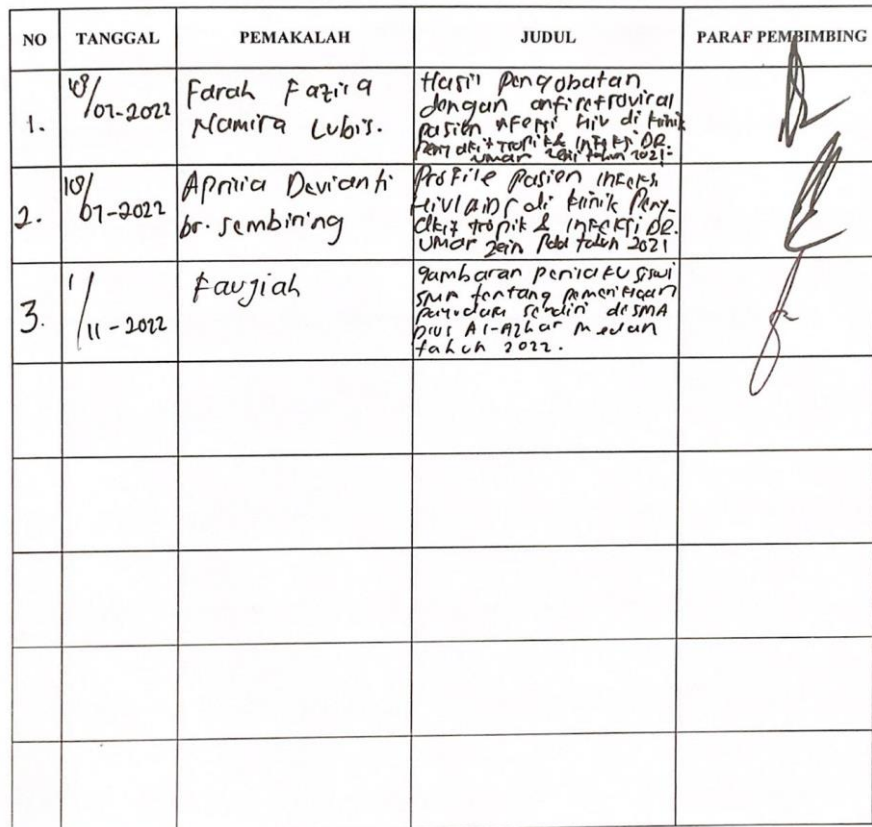 NO TANGGAL PEMAKALAH JUDUL PARAF PEMBIMBING
1.
/07-2022
Farah Fazira
Namira Lubis.
Hasil Pengobatan
dengan antiretroviral
pasien infeksi Hiv di klinik
Penyakit tropik & Infeksi DR.
Umar Zein tahun 2021
2.
18/
07-2022
Aprilia Devianti
br. sembiring
Profile pasien infeksi
HIV/AIDS di klinik Peny-
akit tropik & infeksi DR.
Umar Zein Pada tahun 2021
3.
1/
11-2022
Faujiah
gambaran perilaku siswi
SMA tentang pemeriksaan
payudara sendiri di SMA
Plus Al-Azhar Medan
tahun 2022.